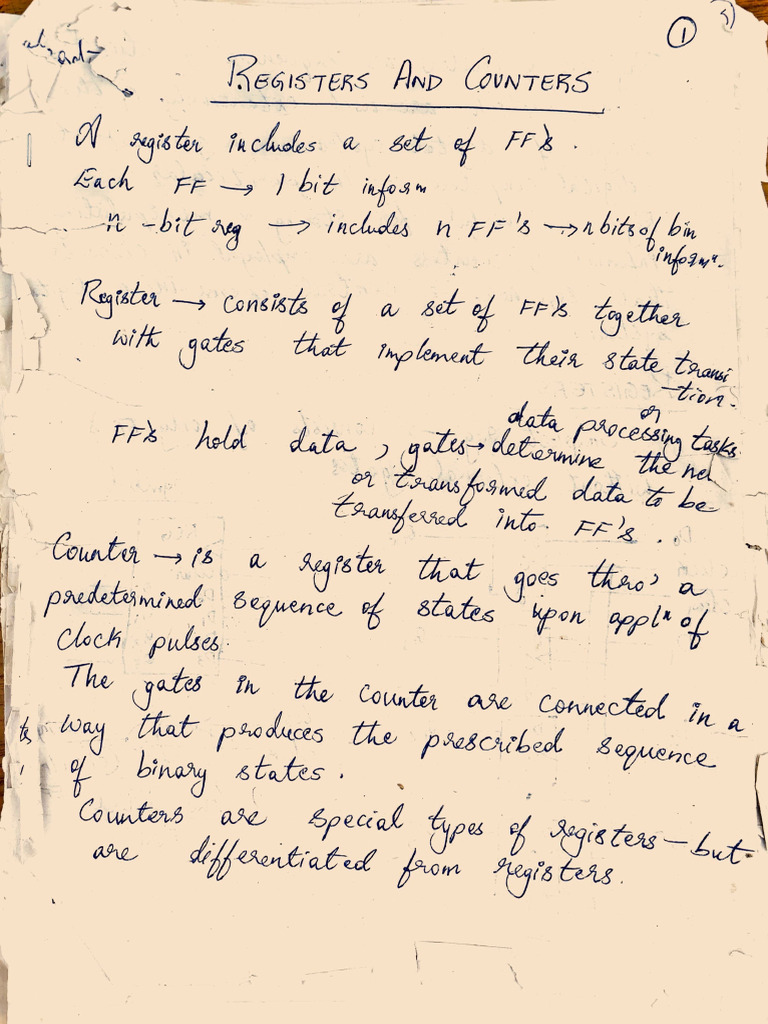 ①
REGISTERS AND COUNTERS
A register includes a set of FF's.
Each FF → 1 bit inform
n-bit reg → includes n FF's → n bits of bin
inform n.
Register → consists of a set of FF's together
with gates that implement their state transi
-tion.
or
data processing tasks
FF's hold data, gates → determine the new
or transformed data to be
transferred into FF's ..
Counter → is a register that goes thro' a
predetermined sequence of states upon appl n of
clock pulses.
The gates in the counter are connected in a
way that produces the prescribed sequence
of binary states.
Counters are special types of registers — but
are differentiated from registers.